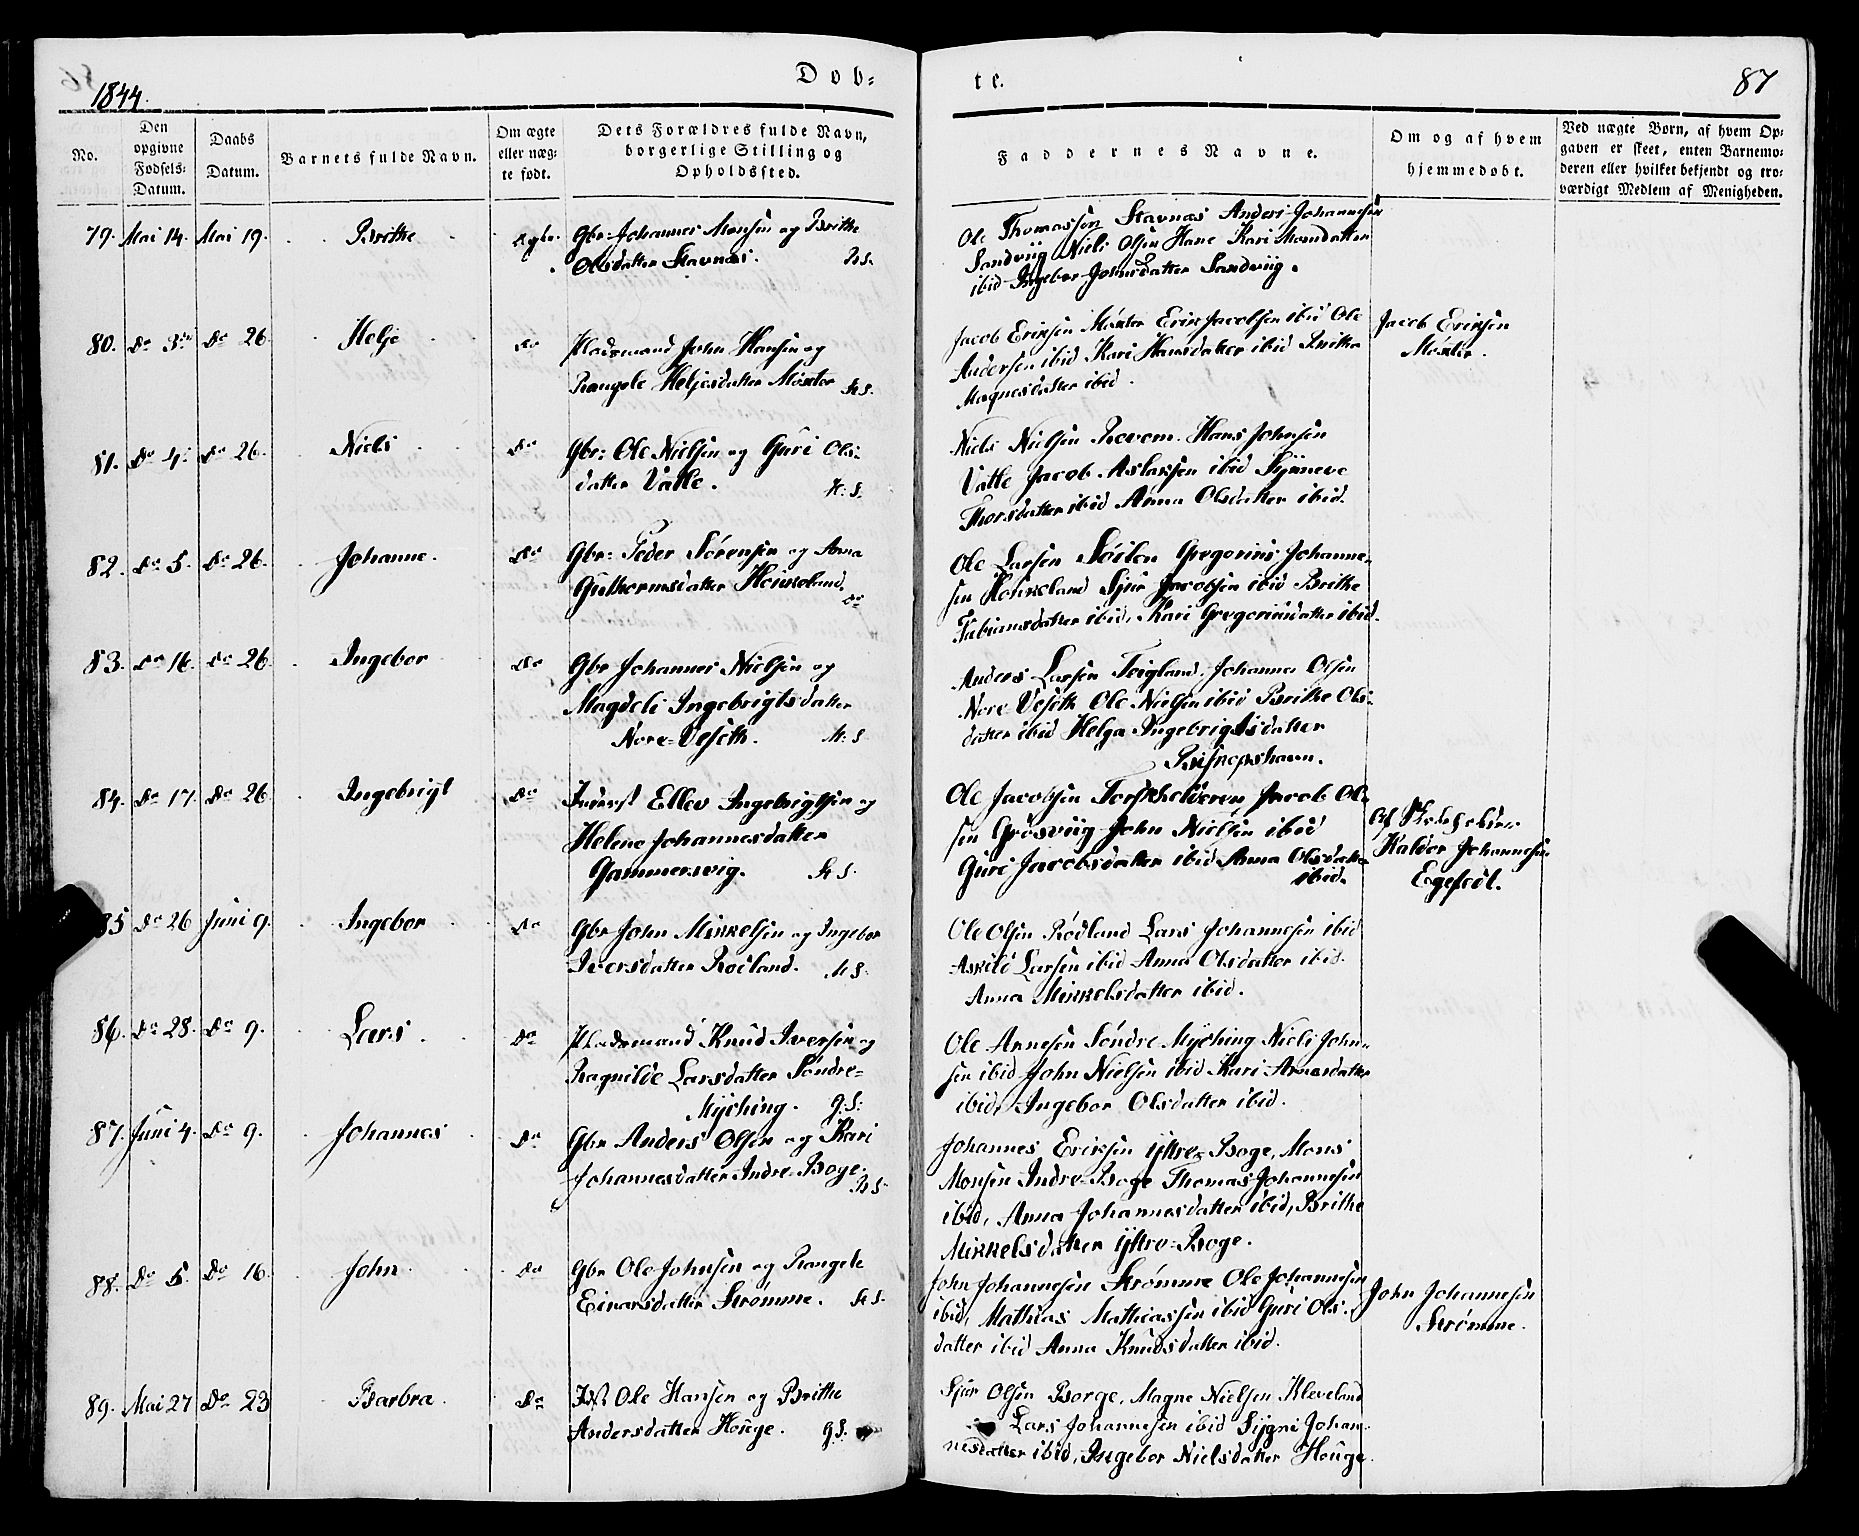 1844.
Døb=
te.
87
No.
Den opgivne Fødsels= Datum.
Daabs Datum.
Barnets fulde Navn.
Om ægte eller næg= te født.
Dets Forældres fulde Navn, borgerlige Stilling og Opholdssted.
Faddernes Navne.
Om og af hvem hjemmedøbt.
Ved uægte Børn, af hvem Op= gaven er skeet, enten Barnemo= deren eller hvilket bekjendt og tro= værdigt Medlem af Menigheden.
79. Mai 14. Mai 19. Brithe
Gbr Johannes Monsen og Brithe
Olsdatter Stavnæs. B.S.
Ole Thomassen Stavnæs Anders Johannesen
Sandviig Niels Olsen Hane Kari Monsdatter
ibid Ingebor Johnsdatter Sandviig.
80. Do 3 Do 26 Helje Do
Pladsmand John Hansen og
Rangele Heljesdatter Møxter H.S.
Jacob Eriksen Møxter Erik Jacobsen ibid Ole
Andersen ibid Kari Hansdatter ibid Brithe
Magnesdatter ibid.
Jacob Eriksen
Møxter.
81. Do 4. Do 26. Niels Do
Gbr: Ole Nielsen og Guri Ols=
datter Vatle. H:S.
Niels Nielsen Hans Johnsen
Vatle Jacob Aslaksen ibid Synneve
Thorsdatter ibid Anna Olsdatter ibid.
82. Do 5. Do 26. Johanne. Do
Gbr: Peder Sørensen og Anna
Guthormsdatter Houkeland. Do
Ole Larsen Gregorius Johanne=
sen Houkeland Sjur Jacobsen ibid Brithe
Fabiansdatter ibid, Kari Gregoriusdatter ibid.
83. Do 16. Do 26. Ingebor Do
Gbr Johannes Nielsen og
Magdeli Ingebrigtsdatter
Nore=Veseth. M:S
Anders Larsen Teigland, Johannes Olsen
Nore Veseth Ole Nielsen ibid Brithe Ols=
datter ibid Helga Ingebrigtsdatter
Biskopshavn.
84. Do 17. Do 26 Ingebrigt Do
Inderst Ellev Ingebrigtsen og
Helene Johannesdatter
Gammersvig. H S.
Ole Jacobsen Jacob Ol=
sen Grøsviig John Nielsen ibid
Guri Jacobsdatter ibid Anna Olsdatter
ibid.
Af Skoleholder
Haldor Johannesen
85 Do 26 Juni 9. Ingebor Do
Gbr John Mikkelsen og Ingebor
Iversdatter Rødland. M S.
Ole Olsen Rødland Lars Johannesen ibid
Askild Larsen ibid Anna Olsdatter ibid.
Anna Mikkelsdatter ibid.
86. Do 28. Do 9. Lars. Do
Pladsmand Knud Iversen og
Ragnilde Larsdatter Søndre=
Myching. G:S:
Ole Arnesen Søndre Myching Niels John=
sen ibid John Nielsen ibid Kari Arnesdatter
ibid, Ingebor Olsdatter ibid.
87. Juni 4. Do 9. Johannes Do
Gbr Anders Olsen og Kari
Johannesdatter Indre-Boge. B S.
Johannes Eriksen Yttre-Boge, Mons
Monsen Indre-Boge Thomas Johannesen
ibid, Anna Johannesdatter ibid, Brithe
Mikkelsdatter Yttre-Boge.
88. Do 5. Do 16. John. Do
Gbr Ole Johnsen og Rangele
Einarsdatter Strømme. H S.
John Johannesen Strømme Ole Johannesen
ibid, Mathias Mathiassen ibid Guri Ols=
datter ibid Anna Knudsdatter ibid.
John Johannesen
Strømme.
89. Mai 27 Do 23 Barbra. Do
Ole Hansen og Brithe
Andersdatter Houge. G S.
Sjur Olsen Borge, Magne Nielsen Kleveland
Lars Johannesen ibid Signi Johan=
nesdatter ibid, Ingebor Nielsdatter Houge.